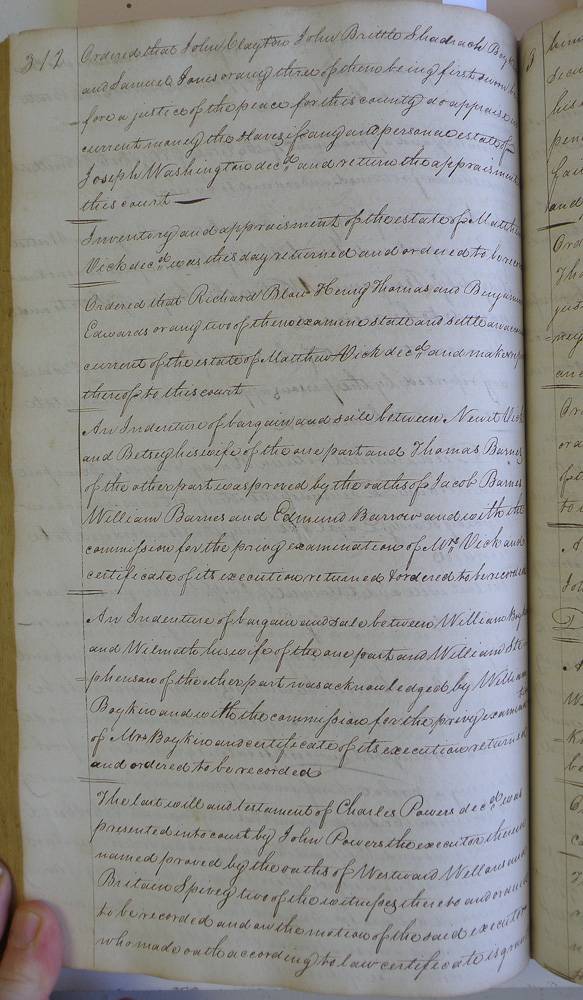 312
Ordered that John Clayton John Brittle Shadrach
and Samuel Jones or any three of them being first sworn
fore a justice of the peace for this county do appraise in
current money the slaves if any and personal estate of
Joseph Washington dec.d and return the appraisment
this court
Inventory and appraisment of the estate of Matthew
Vick dec.d was this day returned and ordered to be
Ordered that Richard Blow Henry Thomas and Benjamin
Edwards or any two of them examine state and settle an
current of the estate of Matthew Vick dec.d and make
thereof to this court
An Indenture of bargain and sale between Newit Vick
and Betsey his wife of the one part and Thomas Barnes
of the other part was proved by the oaths of Jacob Barnes
William Barnes and Edmund Barrow and with the
commission for the privy examination of Mrs Vick and
certificate of its execution returned & ordered to be recorded
An Indenture of bargain and sale between William
and Wilmoth his wife of the one part and William Ste
phenson of the other part was acknowledged by William
Boykin and with the commission for the privy
of Mrs Boykin and certificate of its execution returned
and ordered to be recorded
The last will and testament of Charles Powers dec.d was
presented into court by John Powers the executor therein
named proved by the oaths of Westward and
Britain Spivey two of the witnesses thereto and
to be recorded and on the motion of the said executor
who made oath according to law certificate is